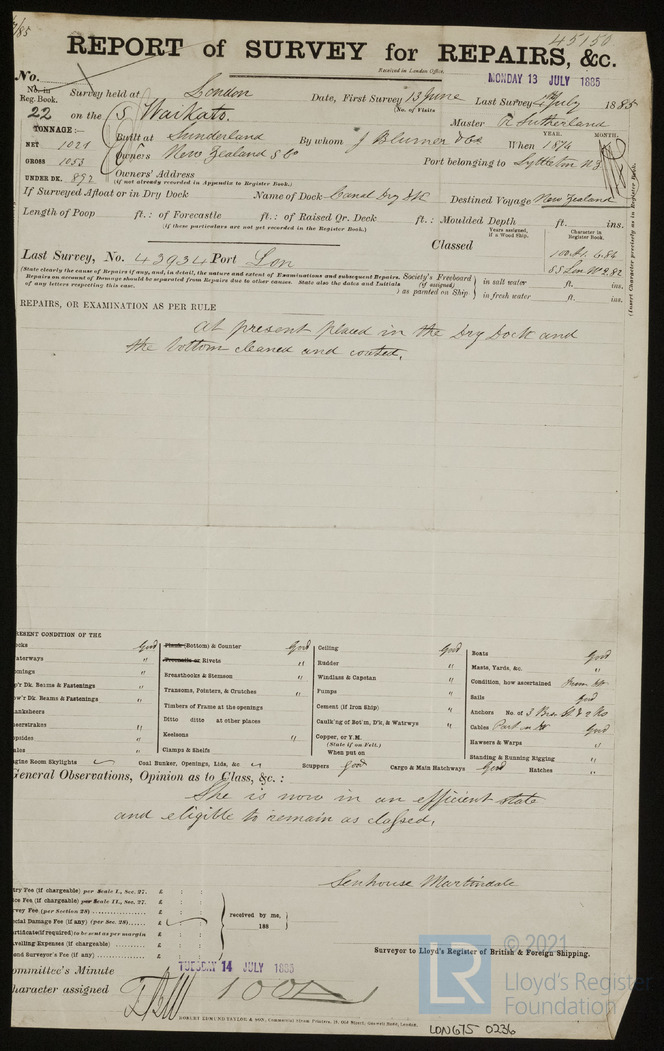 45150
REPORT of SURVEY for REPAIRS, &c.
Received in London Office.
MONDAY 13 JULY 1885
No.
No. in Reg. Book. Survey held at London Date, First Survey 13 June Last Survey July 1885
(No. of Visits
22 on the S Waikato. Master R Sutherland
TONNAGE:— YEAR. MONTH.
NET 1021 Built at Sunderland By whom J Blumer & Co When 1874
GROSS 1053 Owners New Zealand S Co Port belonging to Lyttelton N Z
UNDER DK. 892 Owners' Address
(if not already recorded in Appendix to Register Book.)
If Surveyed Afloat or in Dry Dock Name of Dock Canal Dry Dk Destined Voyage New Zealand
Length of Poop ft.: of Forecastle ft.: of Raised Qr. Deck ft.: Moulded Depth ft. ins.
(If these particulars are not yet recorded in the Register Book.)
Years assigned, if a Wood Ship. Character in Register Book.
Last Survey, No. 43934 Port Lon Classed 100A1 6.84
SS Lon No 2,82
(State clearly the cause of Repairs if any, and, in detail, the nature and extent of Examinations and subsequent Repairs.
Repairs on account of Damage should be separated from Repairs due to other causes. State also the dates and Initials
of any letters respecting this case.
Society's Freeboard (if assigned) as painted on Ship
in salt water ft. ins.
in fresh water ft. ins.
(Insert Character precisely as in Register Book.
REPAIRS, OR EXAMINATION AS PER RULE
At present placed in the Dry Dock and
the bottom cleaned and coated.
RESENT CONDITION OF THE
ocks Good Plank (Bottom) & Counter Good Ceiling Good Boats Good
aterways " Treenails or Rivets " Rudder " Masts, Yards, &c. "
omings " Breasthooks & Stemson " Windlass & Capstan " Condition, how ascertained
p'r Dk. Beams & Fastenings " Transoms, Pointers, & Crutches " Pumps " Sails Good
w'r Dk. Beams & Fastenings " Timbers of Frame at the openings Cement (if Iron Ship) " Anchors No. of 3
anksheers Ditto ditto at other places Caulk'ng of Bot'm, D'k, & Watrwys " Cables Good
eerstrakes " Keelsons " Copper, or Y.M. Hawsers & Warps "
opsides " Clamps & Shelfs (State if on Felt.) Standing & Running Rigging "
ales " When put on
ngine Room Skylights Coal Bunker, Openings, Lids, &c Scuppers Good Cargo & Main Hatchways Good Hatches "
General Observations, Opinion as to Class, &c. :
She is now in an efficient state
and eligible to remain as classed.
Senhouse Martindale
Surveyor to Lloyd's Register of British & Foreign Shipping.
try Fee (if chargeable) per Scale I., Sec. 27. £ : :
ice Fee (if chargeable) per Scale II., Sec. 27. £ : :
rvey Fee (per Section 28) £ : :
ecial Damage Fee (if any) (per Sec. 28) £
ertificate (if required) to be sent as per margin
avelling Expenses (if chargeable) £
ond Surveyor's Fee (if any) £
received by me,
188
ommittee's Minute TUESDAY 14 JULY 1885
haracter assigned 100A
ROBERT EDMUND TAYLOR & SON, Commercial Steam Printers, 19, Old Street, Goswell Road, London.
LR © 2021
Lloyd's Register
Foundation
LON675 0236